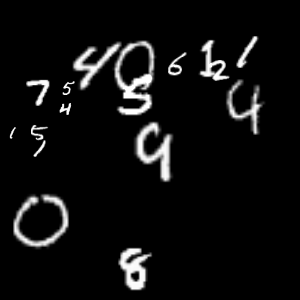 4 0 6 1 2 1
7 5 5 4
4
1 5 1 9
0
8